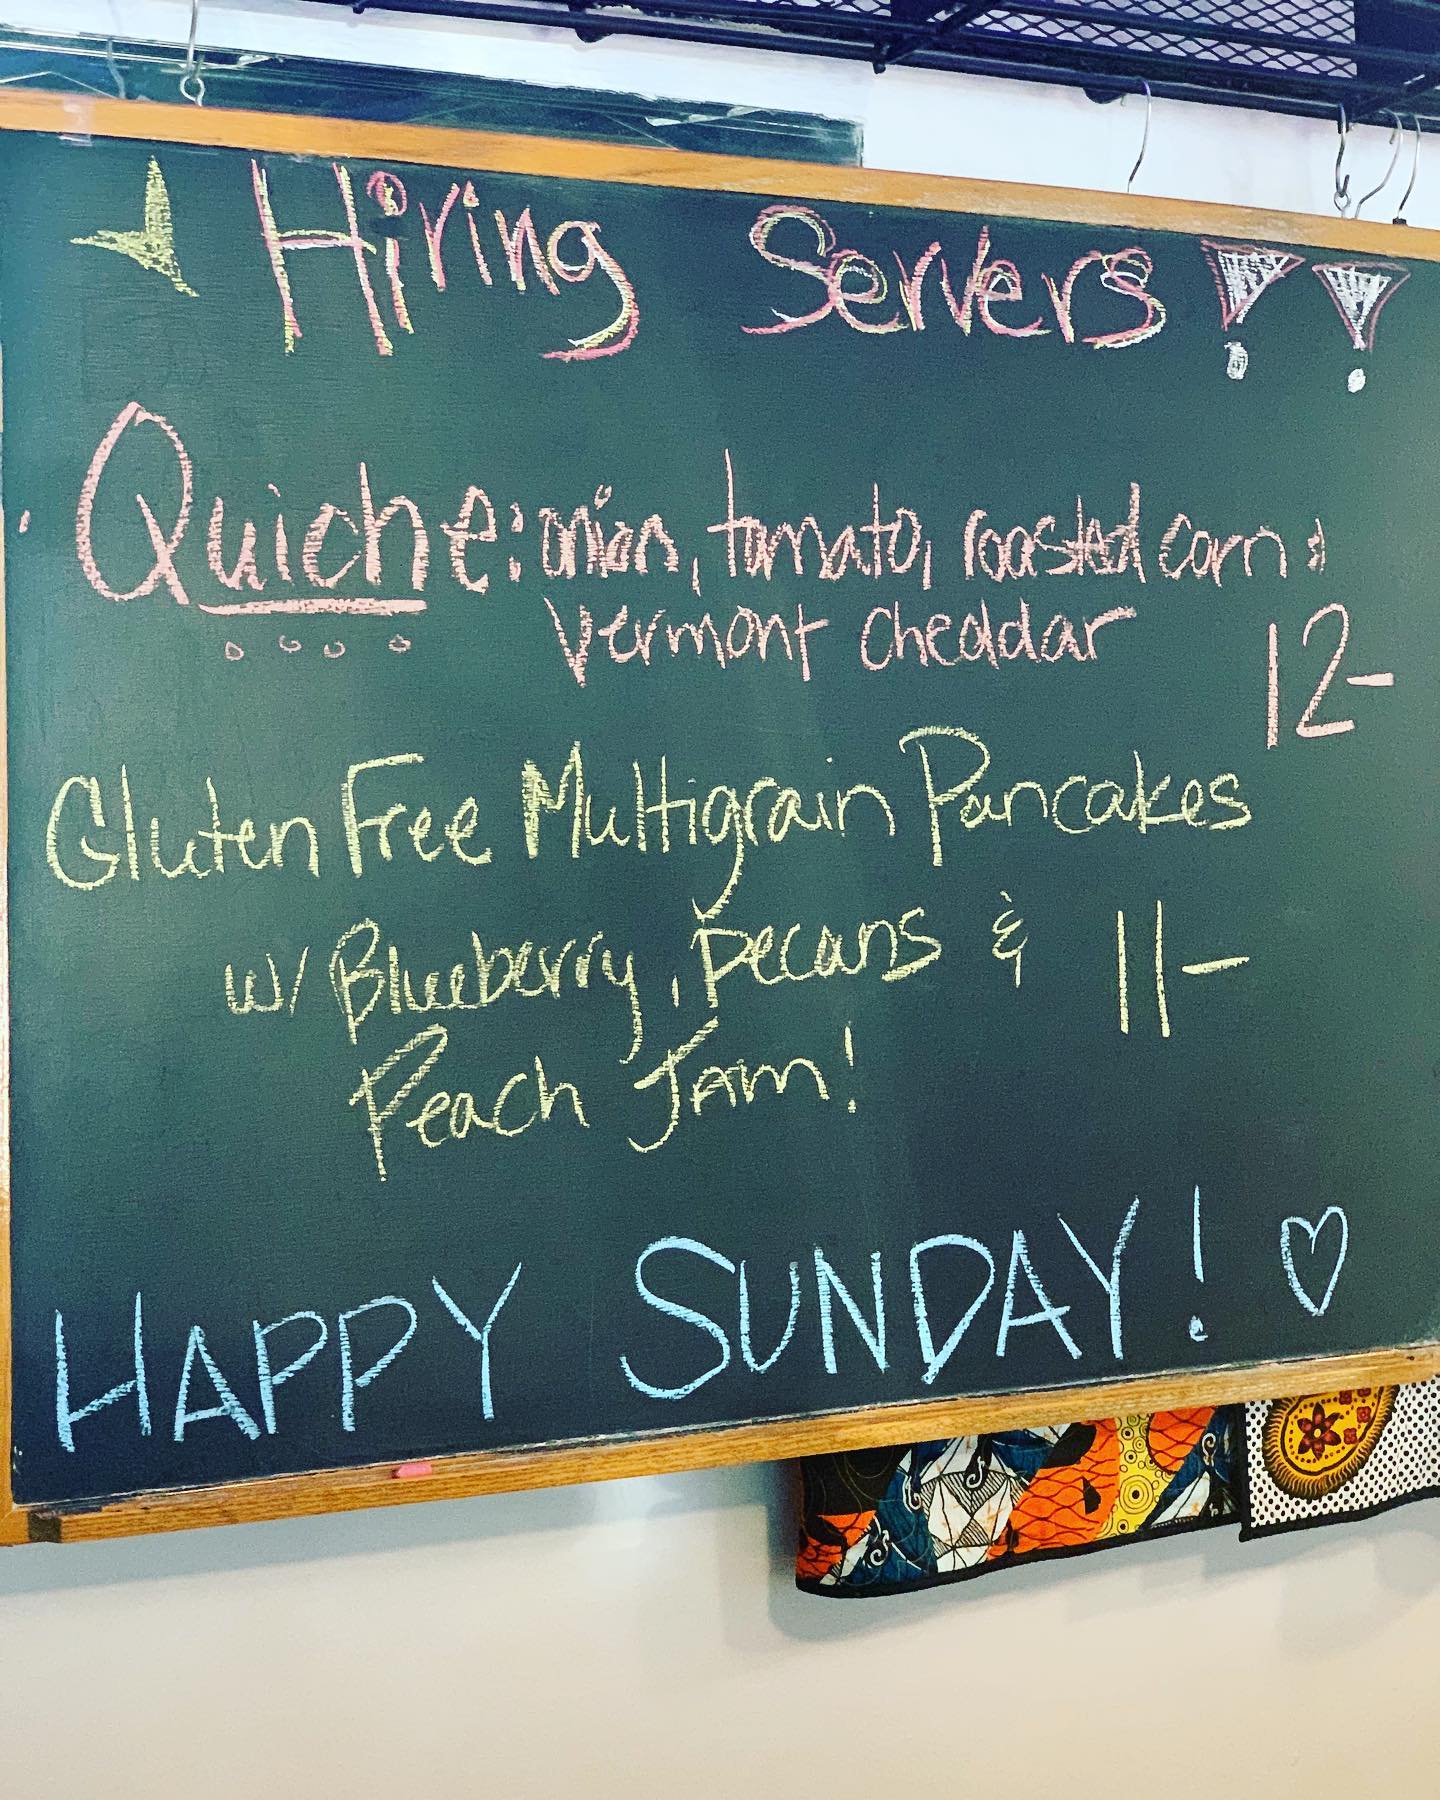 Hiring Servers!!
Quiche: onion, tomato, roasted corn &
Vermont cheddar 12-
Gluten Free Multigrain Pancakes
w/ Blueberry, Pecans & 11-
Peach Jam!
HAPPY SUNDAY!